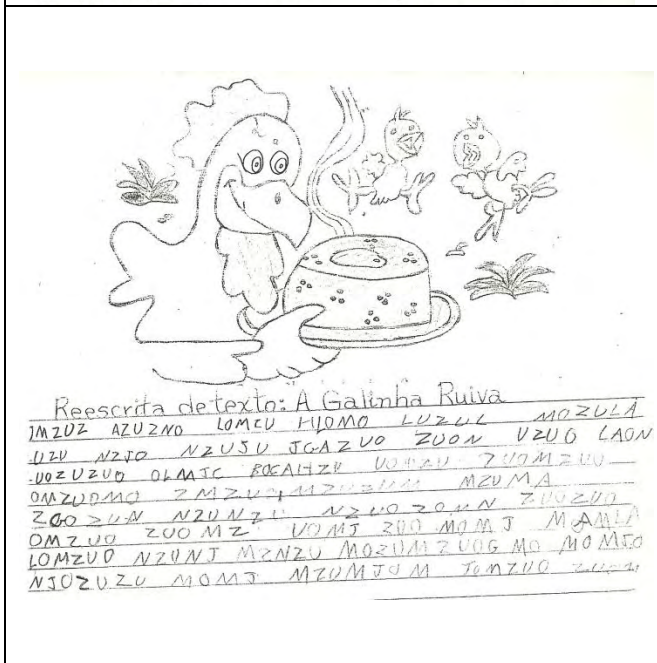 Reescrita de texto: A Galinha Ruiva
IMZUZ AZUZNO LOMCU HJOMO LUZUL MOZULA
UZU NZJO NZUSU JGAZUO ZUON VZUO LAON
UOZUZUO OLAAJC BOCAHZU UOMZU ZUOMZUO
OMZUOMO ZMZUO MZUMA
ZGO ZUN NZUNZU NZUO ZOUN ZUOZUO
OMZUO ZUO MZ UOMJ ZUO MOMJ MAMLA
LOMZUO NZUNJ MZNZU MOZUMZUOG MO MOMJO
NJOZUZU MOMJ MZUMJOM JOMZUO